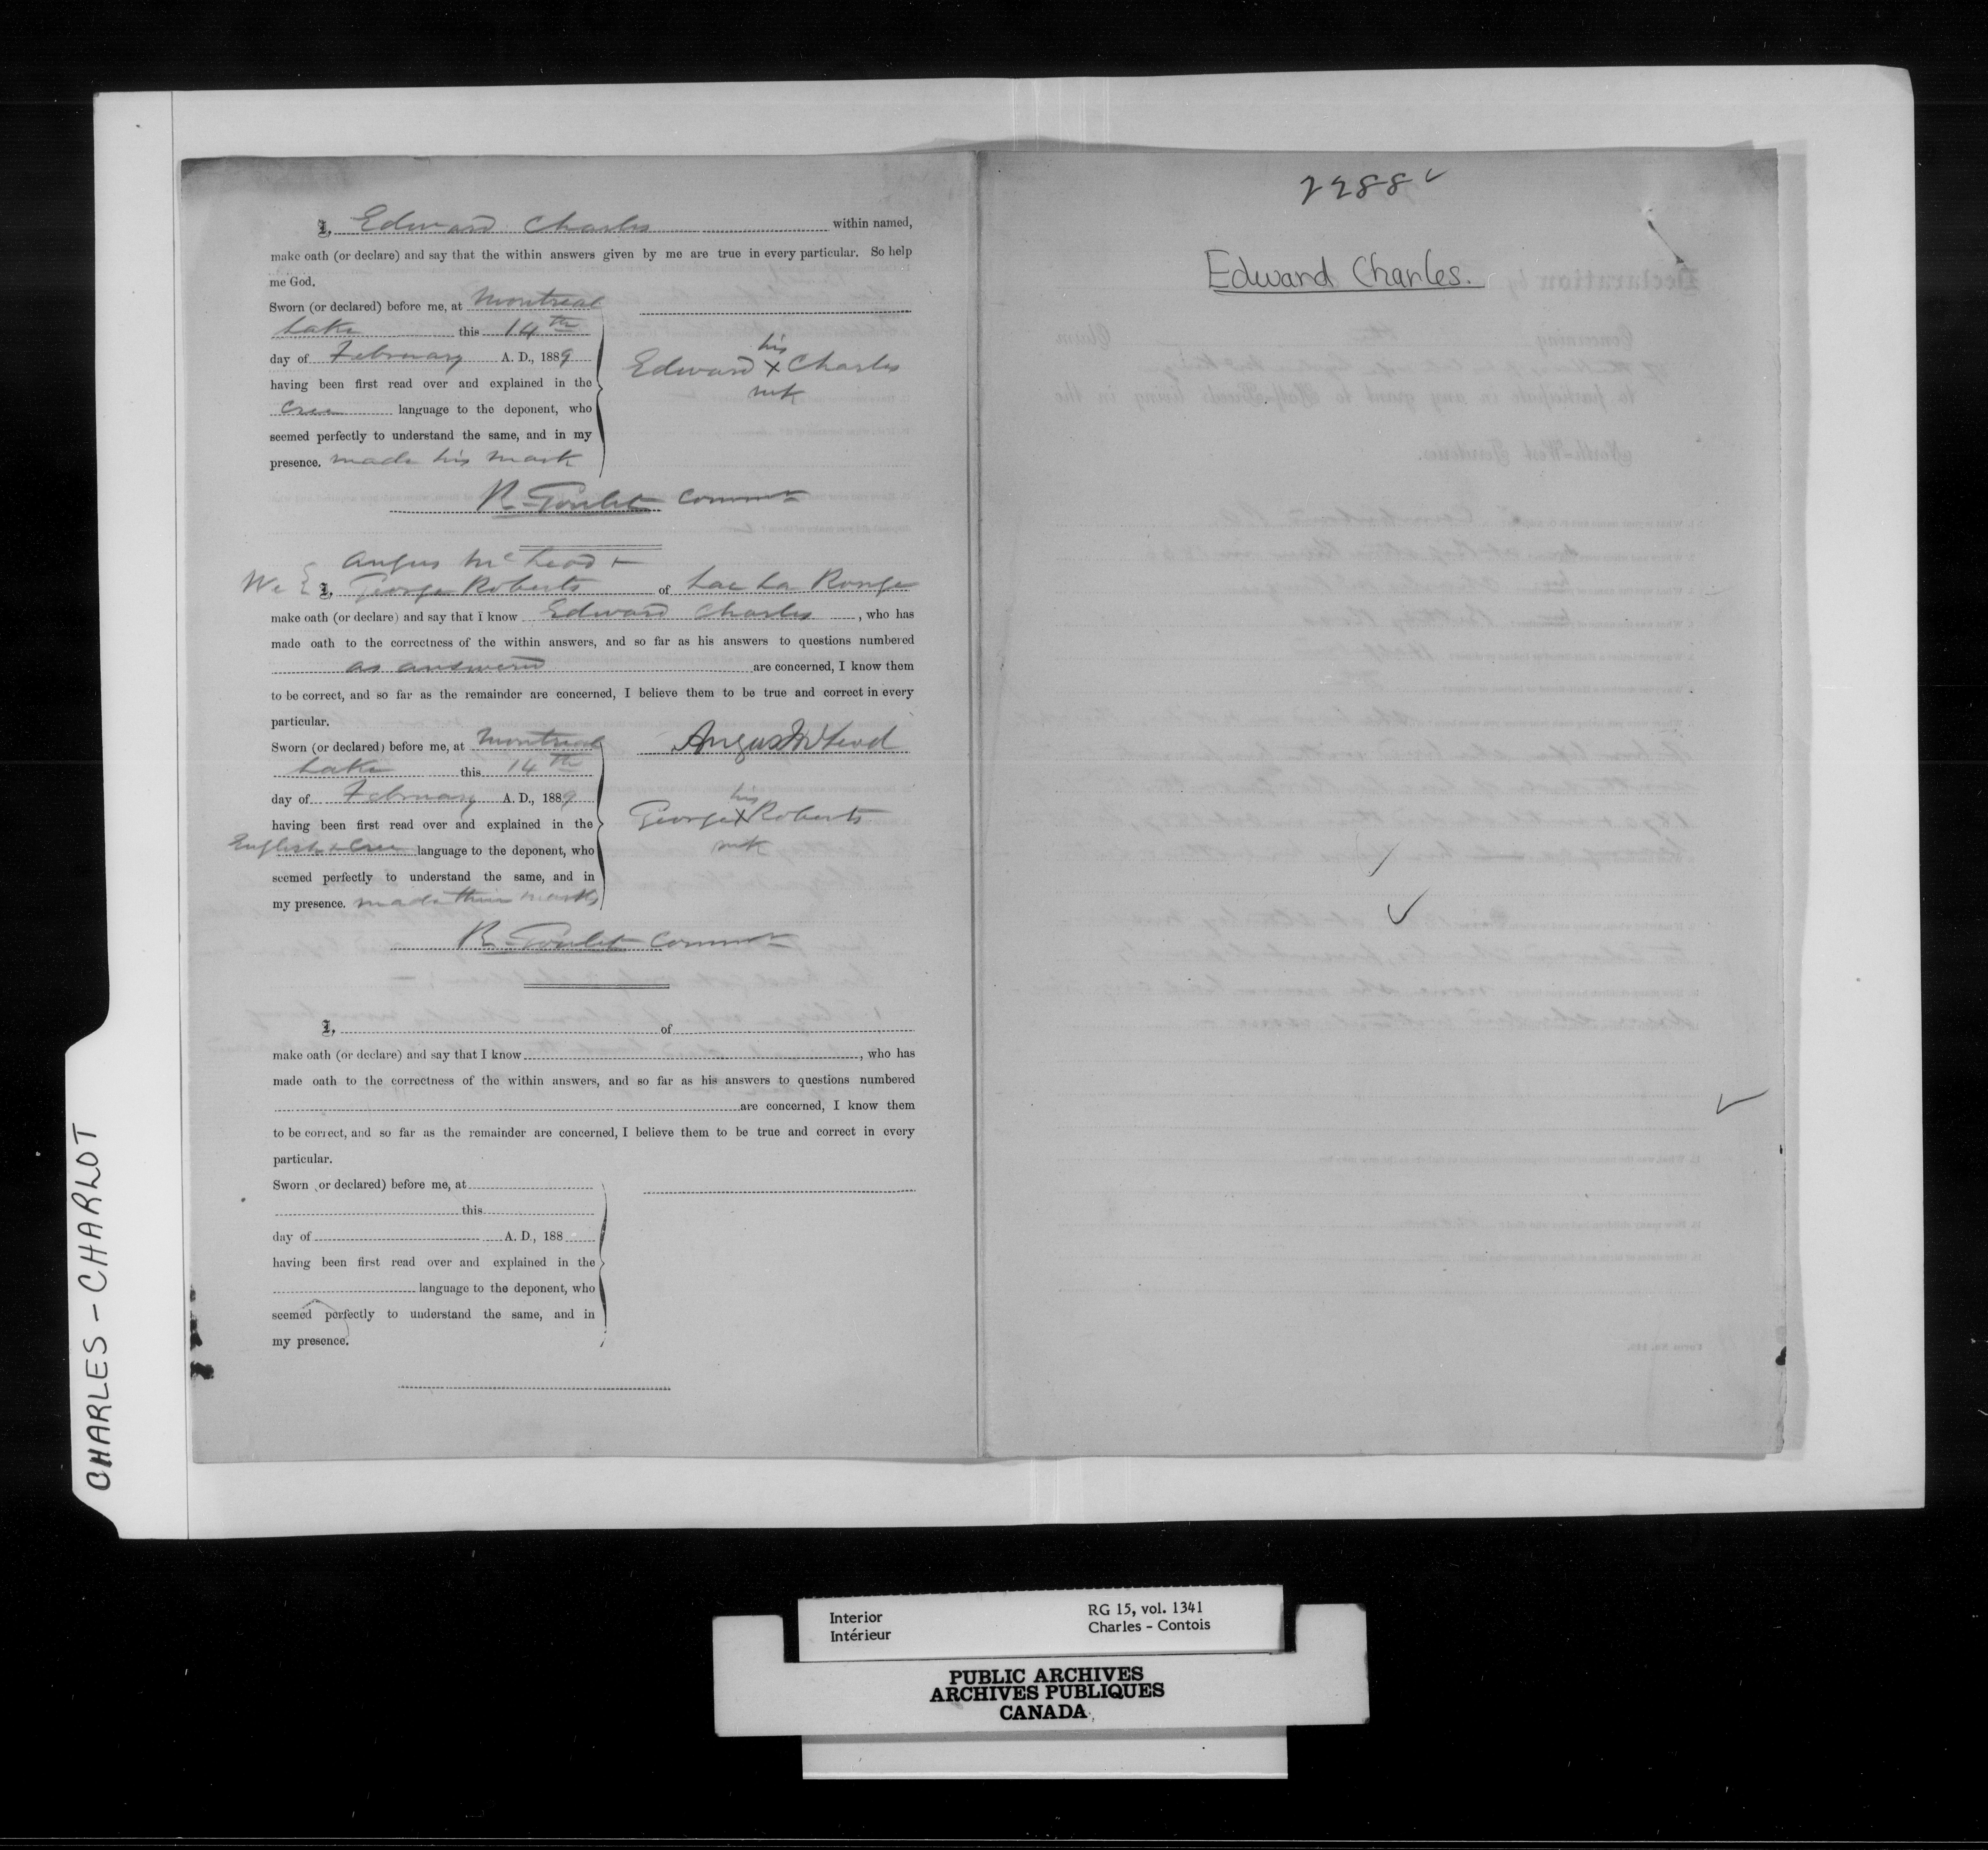 I, Edward Charles within named,
make oath (or declare) and say that the within answers given by me are true in every particular. So help
me God.
Sworn (or declared) before me, at Montreal
Lake this 14th
day of February A. D., 1889
having been first read over and explained in the
Cree language to the deponent, who
seemed perfectly to understand the same, and in my
presence. made his mark
his
Edward x Charles
mk
R. Goulet Commr
Angus McLeod +
We { I, George Roberts of Lac La Ronge
make oath (or declare) and say that I know Edward Charles, who has
made oath to the correctness of the within answers, and so far as his answers to questions numbered
as answered are concerned, I know them
to be correct, and so far as the remainder are concerned, I believe them to be true and correct in every
particular.
Sworn (or declared) before me, at Montreal
Lake this 14th
day of February A. D., 1889
having been first read over and explained in the
English & Cree language to the deponent, who
seemed perfectly to understand the same, and in
my presence. made their marks
Angus McLeod
his
George x Roberts
mk
R. Goulet Commr
I, of
make oath (or declare) and say that I know , who has
made oath to the correctness of the within answers, and so far as his answers to questions numbered
are concerned, I know them
to be correct, and so far as the remainder are concerned, I believe them to be true and correct in every
particular.
Sworn (or declared) before me, at
this
day of A. D., 188
having been first read over and explained in the
language to the deponent, who
seemed perfectly to understand the same, and in
my presence.
2288 ✓
Edward Charles.
CHARLES - CHARLOT
Interior
Intérieur
RG 15, vol. 1341
Charles - Contois
PUBLIC ARCHIVES
ARCHIVES PUBLIQUES
CANADA